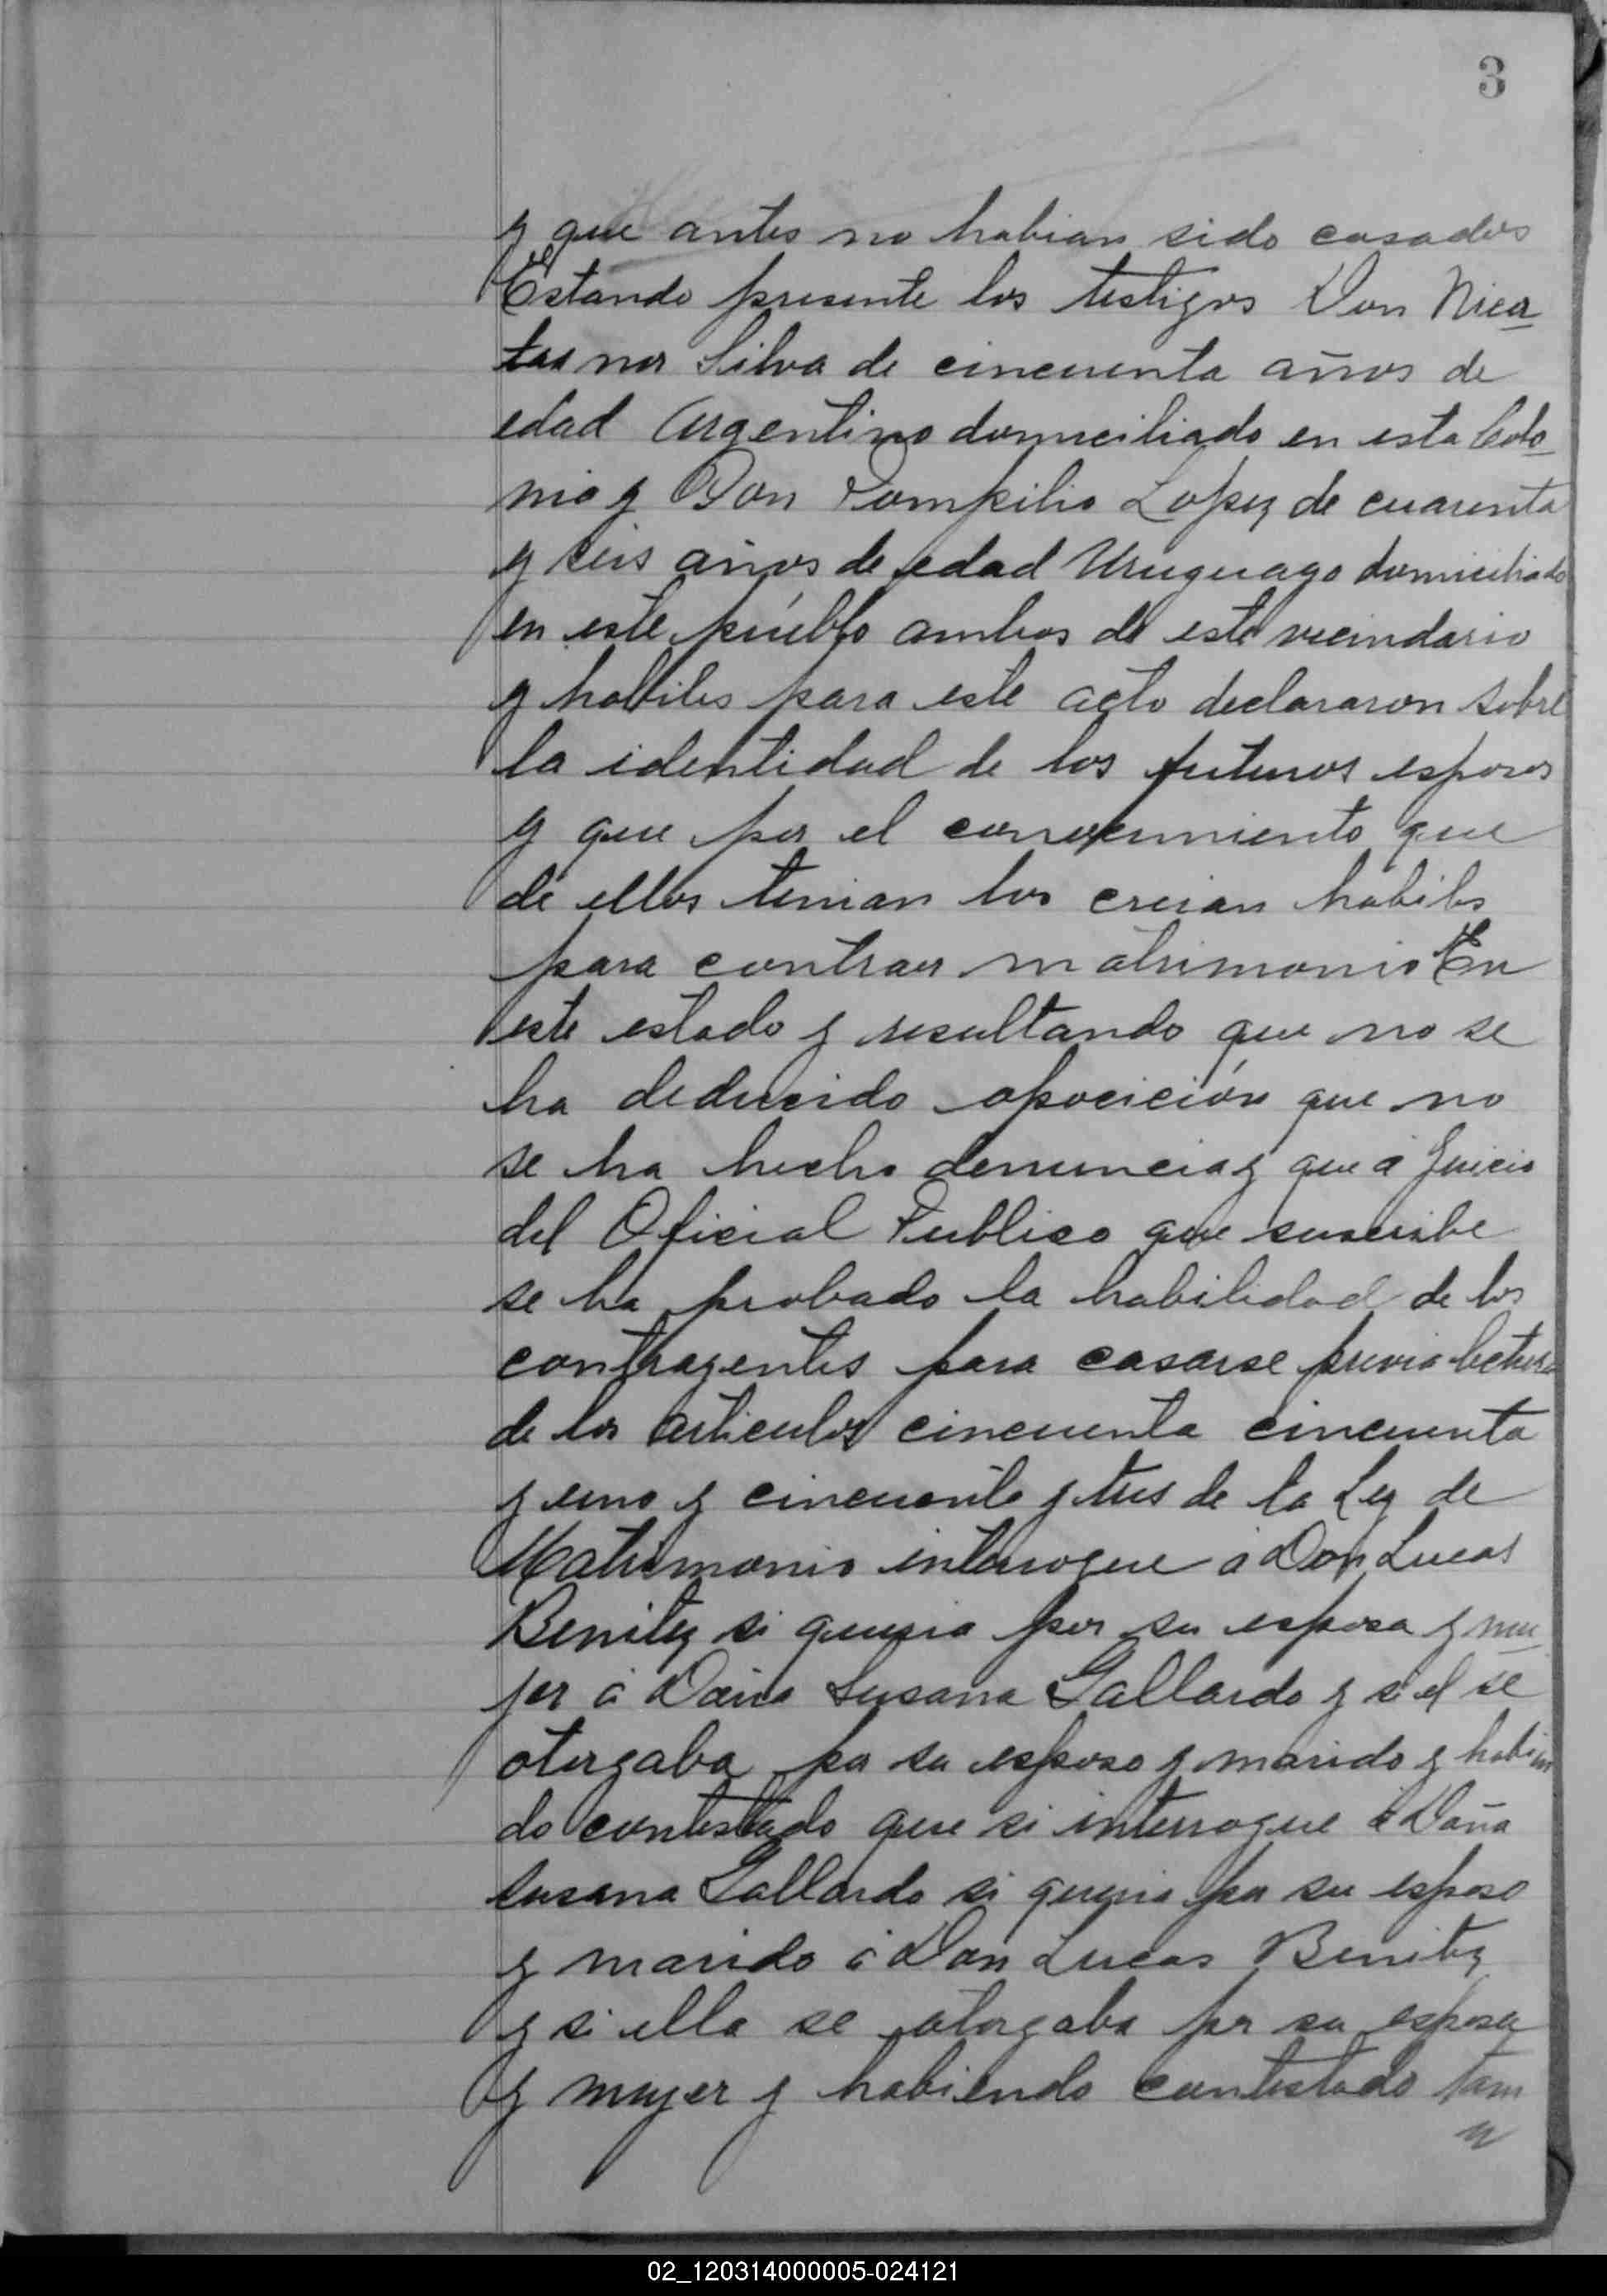 3
y que antes no habian sido casados
Estando presente los testigos Don Nica
nor Silva de cincuenta años de
edad Argentino domiciliado en esta Colo
nia y Don Pompilio Lopez de cuarenta
y seis años de edad Uruguayo domiciliado
en este pueblo ambos de este vecindario
y habiles para este acto declararon sobre
la identidad de los futuros esposos
y que por el conocimiento que
de ellos tenian los creian habiles
para contraer matrimonio En
este estado y resultando que no se
ha deducido opocición que no
se ha hecho denuncia y que á Juicio
del Oficial Publico que suscribe
se ha probado la habilidad de los
contrayentes para casarse previa lectura
de los articulos cincuenta cincuenta
y uno y cincuenta y tres de la Ley de
Matrimonio interrogue á Don Lucas
Benitez si queria por su esposa y mu
jer á Doña Susana Gallardo y si el se
otorgaba por su esposo y marido y habien
do contestado que si interrogue á Doña
Susana Gallardo si queria por su esposo
y marido á Don Lucas Benitez
y si ella se otorgaba por su esposa
y mujer y habiendo contestado tam
02_120314000005-024121